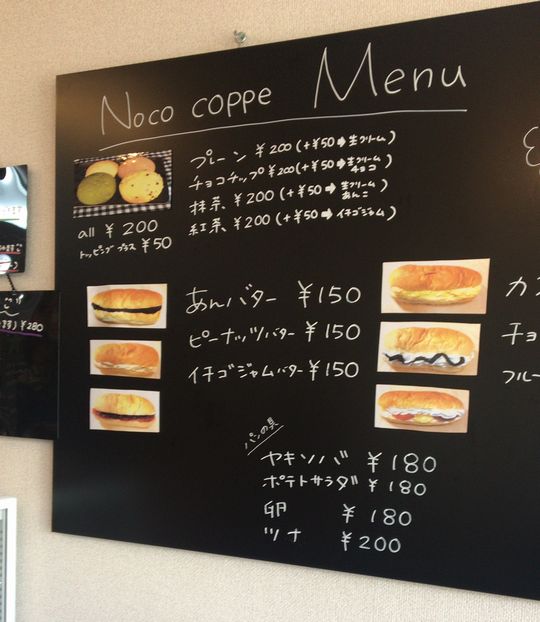 Noco coppe Menu
プレーン ¥200 (+¥50→生クリーム)
チョコチップ ¥200 (+¥50→生クリーム チョコ)
抹茶 ¥200 (+¥50→生クリーム あんこ)
紅茶 ¥200 (+¥50→イチゴジャム)
all ¥200
トッピングプラス ¥50
あんバター ¥150
ピーナッツバター ¥150
イチゴジャムバター ¥150
カス
チョ
フルー
パンの具
ヤキソバ ¥180
ポテトサラダ ¥180
卵 ¥180
ツナ ¥200
¥280